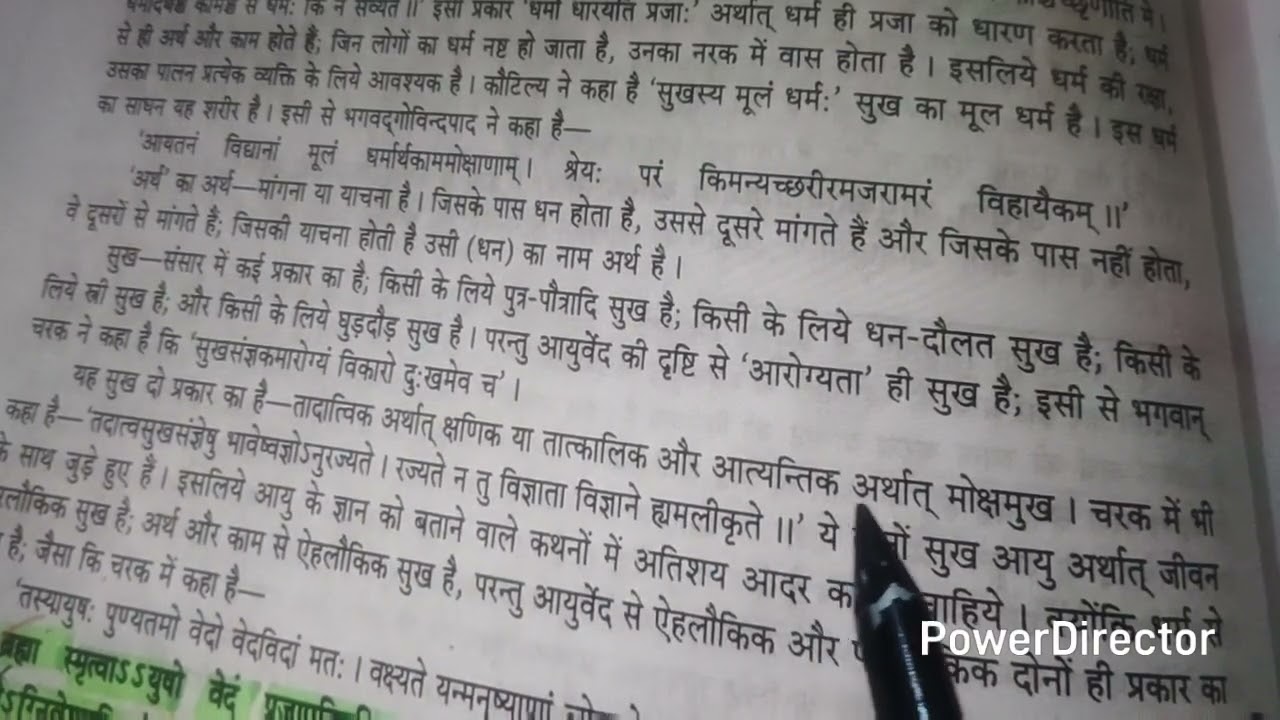 धर्मः किं न सेव्यते ।।' इसी प्रकार 'धर्मो धारयति प्रजाः' अर्थात् धर्म ही प्रजा को धारण करता है; धर्म
से ही अर्थ और काम होते हैं; जिन लोगों का धर्म नष्ट हो जाता है, उनका नरक में वास होता है । इसलिये धर्म की रक्षा,
उसका पालन प्रत्येक व्यक्ति के लिये आवश्यक है । कौटिल्य ने कहा है 'सुखस्य मूलं धर्मः' सुख का मूल धर्म है । इस धर्म
का साधन यह शरीर है । इसी से भगवद्गोविन्दपाद ने कहा है—
'आयतनं विद्यानां मूलं धर्मार्थकाममोक्षाणाम् । श्रेयः परं किमन्यच्छरीरमजरामरं विहायैकम् ।।'
'अर्थ' का अर्थ—मांगना या याचना है । जिसके पास धन होता है, उससे दूसरे मांगते हैं और जिसके पास नहीं होता,
वे दूसरों से मांगते हैं; जिसकी याचना होती है उसी (धन) का नाम अर्थ है ।
सुख—संसार में कई प्रकार का है; किसी के लिये पुत्र-पौत्रादि सुख है; किसी के लिये धन-दौलत सुख है; किसी के
लिये स्त्री सुख है; और किसी के लिये घुड़दौड़ सुख है । परन्तु आयुर्वेद की दृष्टि से 'आरोग्यता' ही सुख है; इसी से भगवान्
चरक ने कहा है कि 'सुखसंज्ञकमारोग्यं विकारो दुःखमेव च' ।
यह सुख दो प्रकार का है—तादात्विक अर्थात् क्षणिक या तात्कालिक और आत्यन्तिक अर्थात् मोक्षमुख । चरक में भी
कहा है—'तदात्वसुखसंज्ञेषु भावेष्वज्ञोऽनुरज्यते । रज्यते न तु विज्ञाता विज्ञाने ह्यमलीकृते ।।' ये सुख आयु अर्थात् जीवन
के साथ जुड़े हुए हैं । इसलिये आयु के ज्ञान को बताने वाले कथनों में अतिशय आदर चाहिये । क्योंकि धर्म से
सुख है; अर्थ और काम से ऐहलौकिक सुख है, परन्तु आयुर्वेद से ऐहलौकिक और दोनों ही प्रकार का
है; जैसा कि चरक में कहा है—
'तस्यायुषः पुण्यतमो वेदो वेदविदां मतः । वक्ष्यते यन्मनुष्याणां
ब्रह्मा स्मृत्वाऽऽयुषो वेदं
PowerDirector